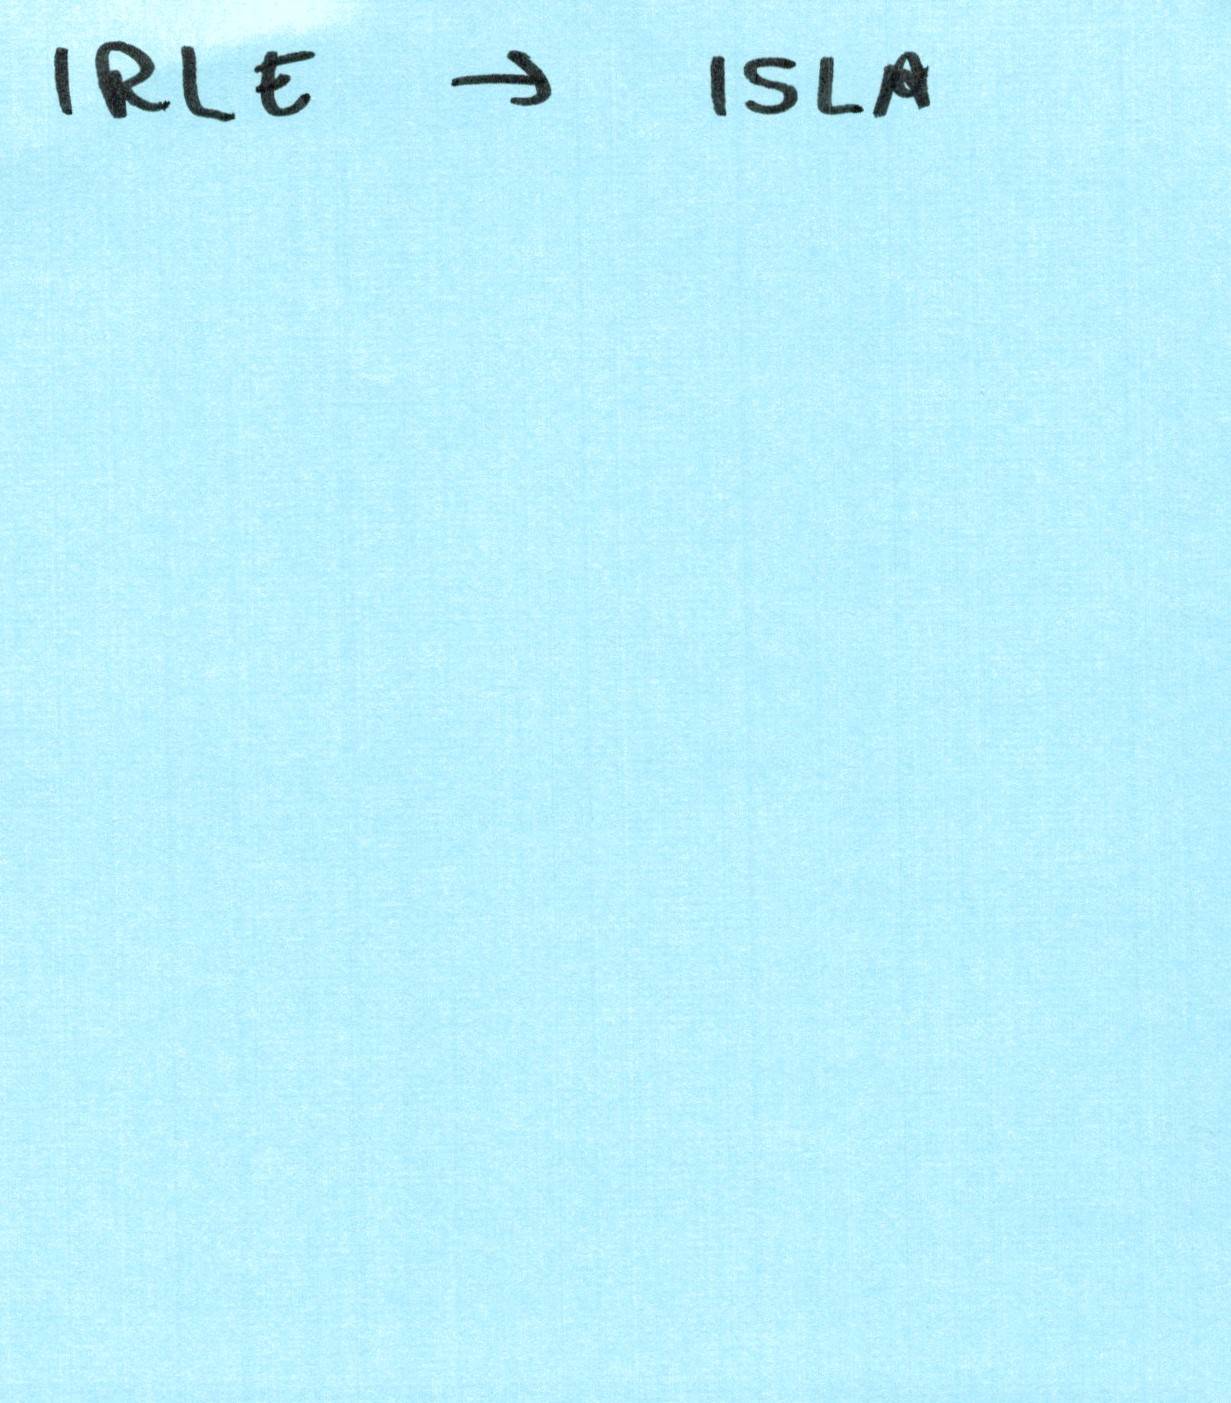 IRLE → ISLA